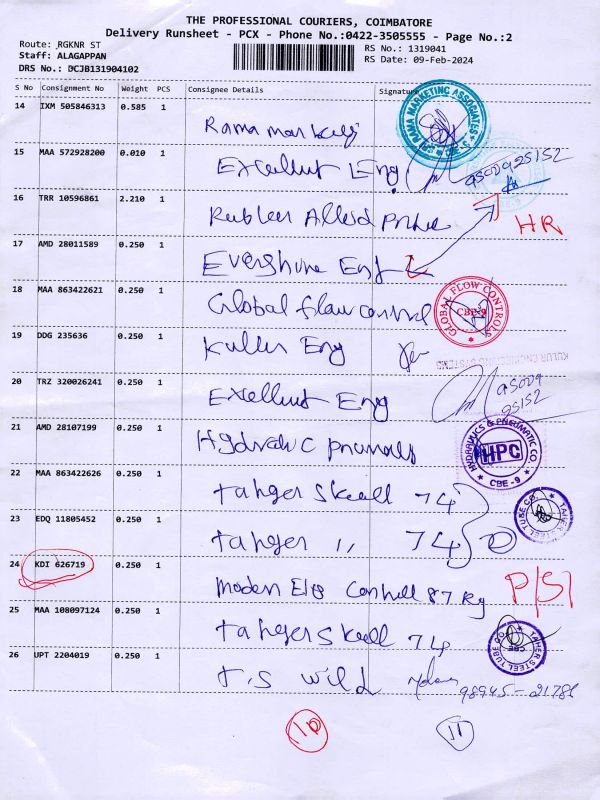 THE PROFESSIONAL COURIERS, COIMBATORE
Delivery Runsheet - PCX - Phone No.:0422-3505555 - Page No.:2
Route: RGKNR ST
RS No.: 1319041
Staff: ALAGAPPAN
RS Date: 09-Feb-2024
DRS No.: DCJB131904102
S No Consignment No Weight PCS Consignee Details Signature
14 IXM 505846313 0.585 1
Rama marketing
SRI RAMA MARKETING ASSOCIATES
15 MAA 572928200 0.010 1
Excellent Eng
95009 95152
16 TRR 10596861 2.210 1
HR
17 AMD 28011589 0.250 1
Evershine Eng
18 MAA 863422621 0.250 1
Global flow control
GLOBAL FLOW CONTROLS
CBE-9
19 DDG 235636 0.250 1
Kuller Eng
20 TRZ 320026241 0.250 1
Excellent Eng
95009
95152
21 AMD 28107199 0.250 1
HYDRAULICS & PNEUMATIC CO.
HPC
CBE - 9
22 MAA 863422626 0.250 1
74
TAHER STEEL TUBE CO.
23 EDQ 11805452 0.250 1
74
24 KDI 626719 0.250 1
Modern 87 Kg
P/S1
25 MAA 108097124 0.250 1
74
TAHER STEEL TUBE CO.
CBE
26 UPT 2204019 0.250 1
T.S Wild
98945-21786
11